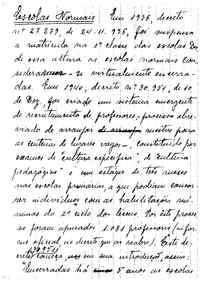 Escolas Normais Em 1936, decreto
nº 27.279, de 24.11.936, foi suspensa
a matrícula na 1ª classe das escolas
dessa altura as escolas normais con-
sideradas virtualmente encerra-
das. Em 1940, decreto nº 30.951, de 10
de Dez, foi criado um sistema emergente
de recrutamento de professores, processo
de arranjar mestres para
as centenas de lugares vagos, constituído por
exames de cultura específica, de cultura
pedagógica e um estágio de três meses
nas escolas primárias, a que podiam concor-
rer indivíduos com as habilitações mí-
nimas do 2º ciclo do liceu. Por este proces-
so foram apurados 1.081 professores
Este de-
creto na sua introdução, assim:
"Encerradas há 5 anos as escolas